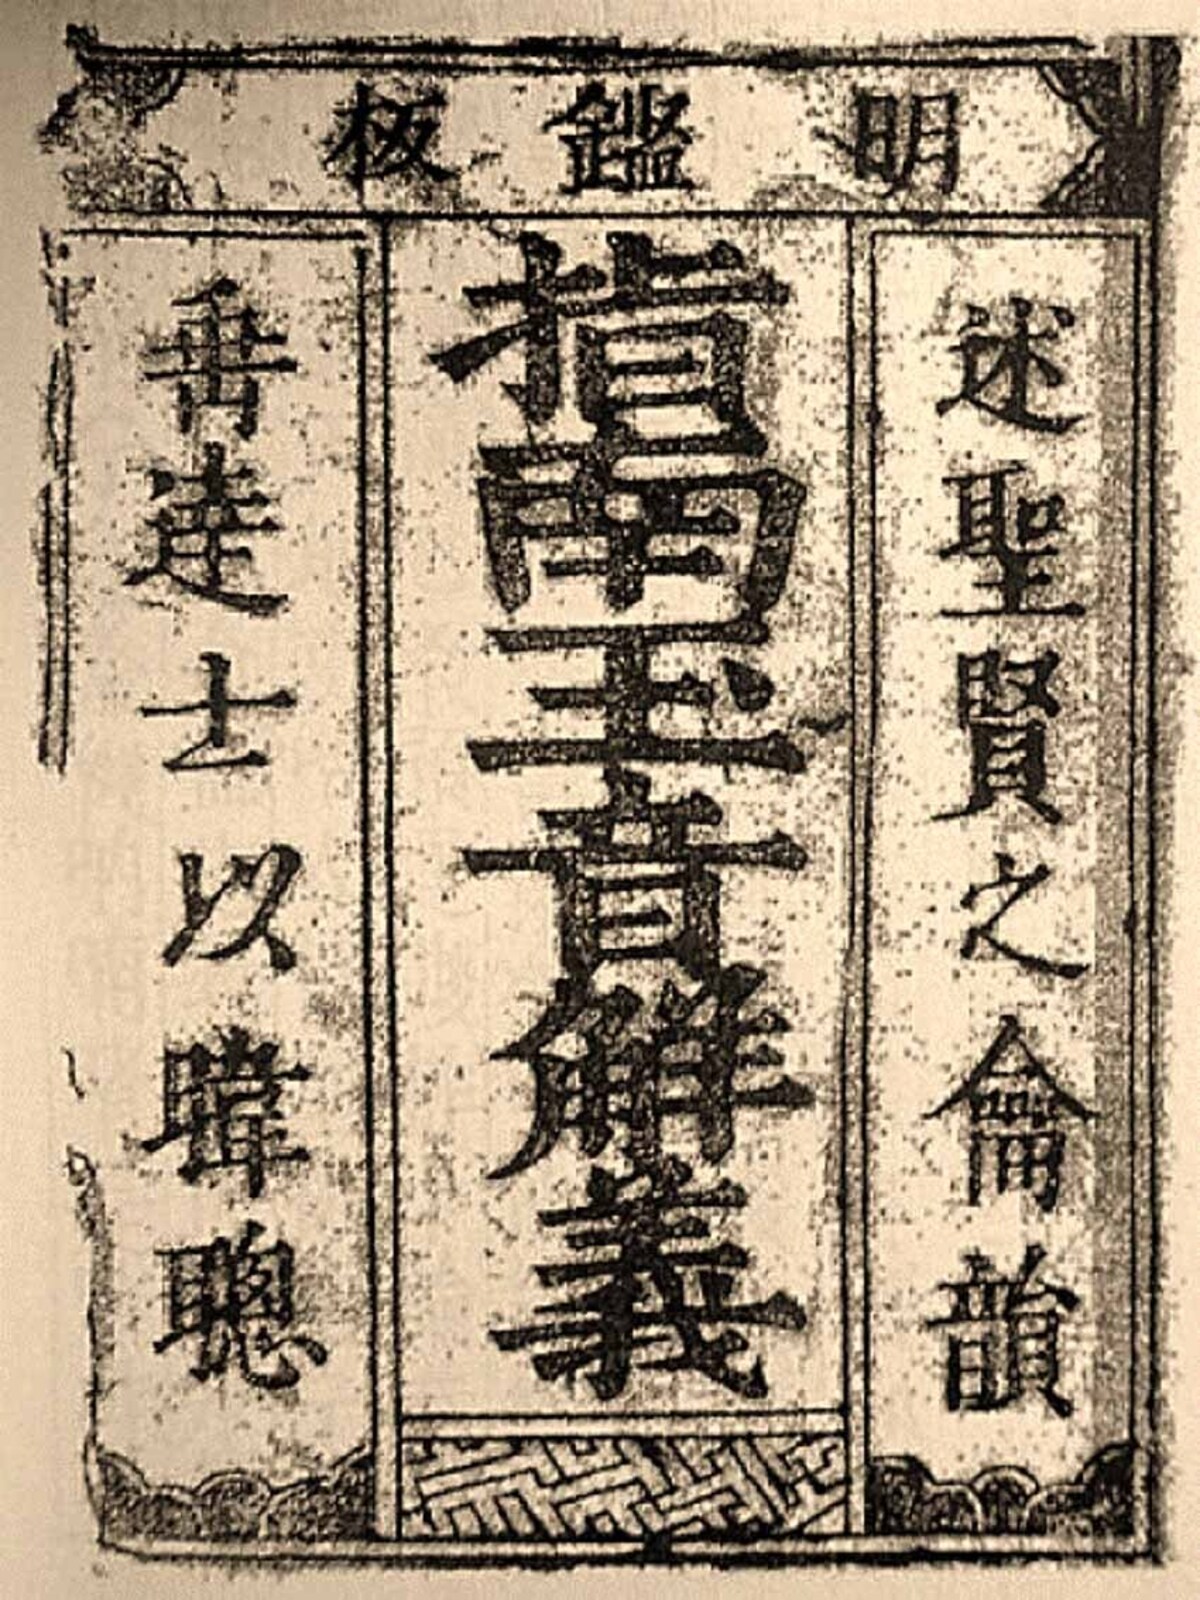 明鑑板
述聖賢之龠韻
指南玉音解義
垂逹士以暐聰